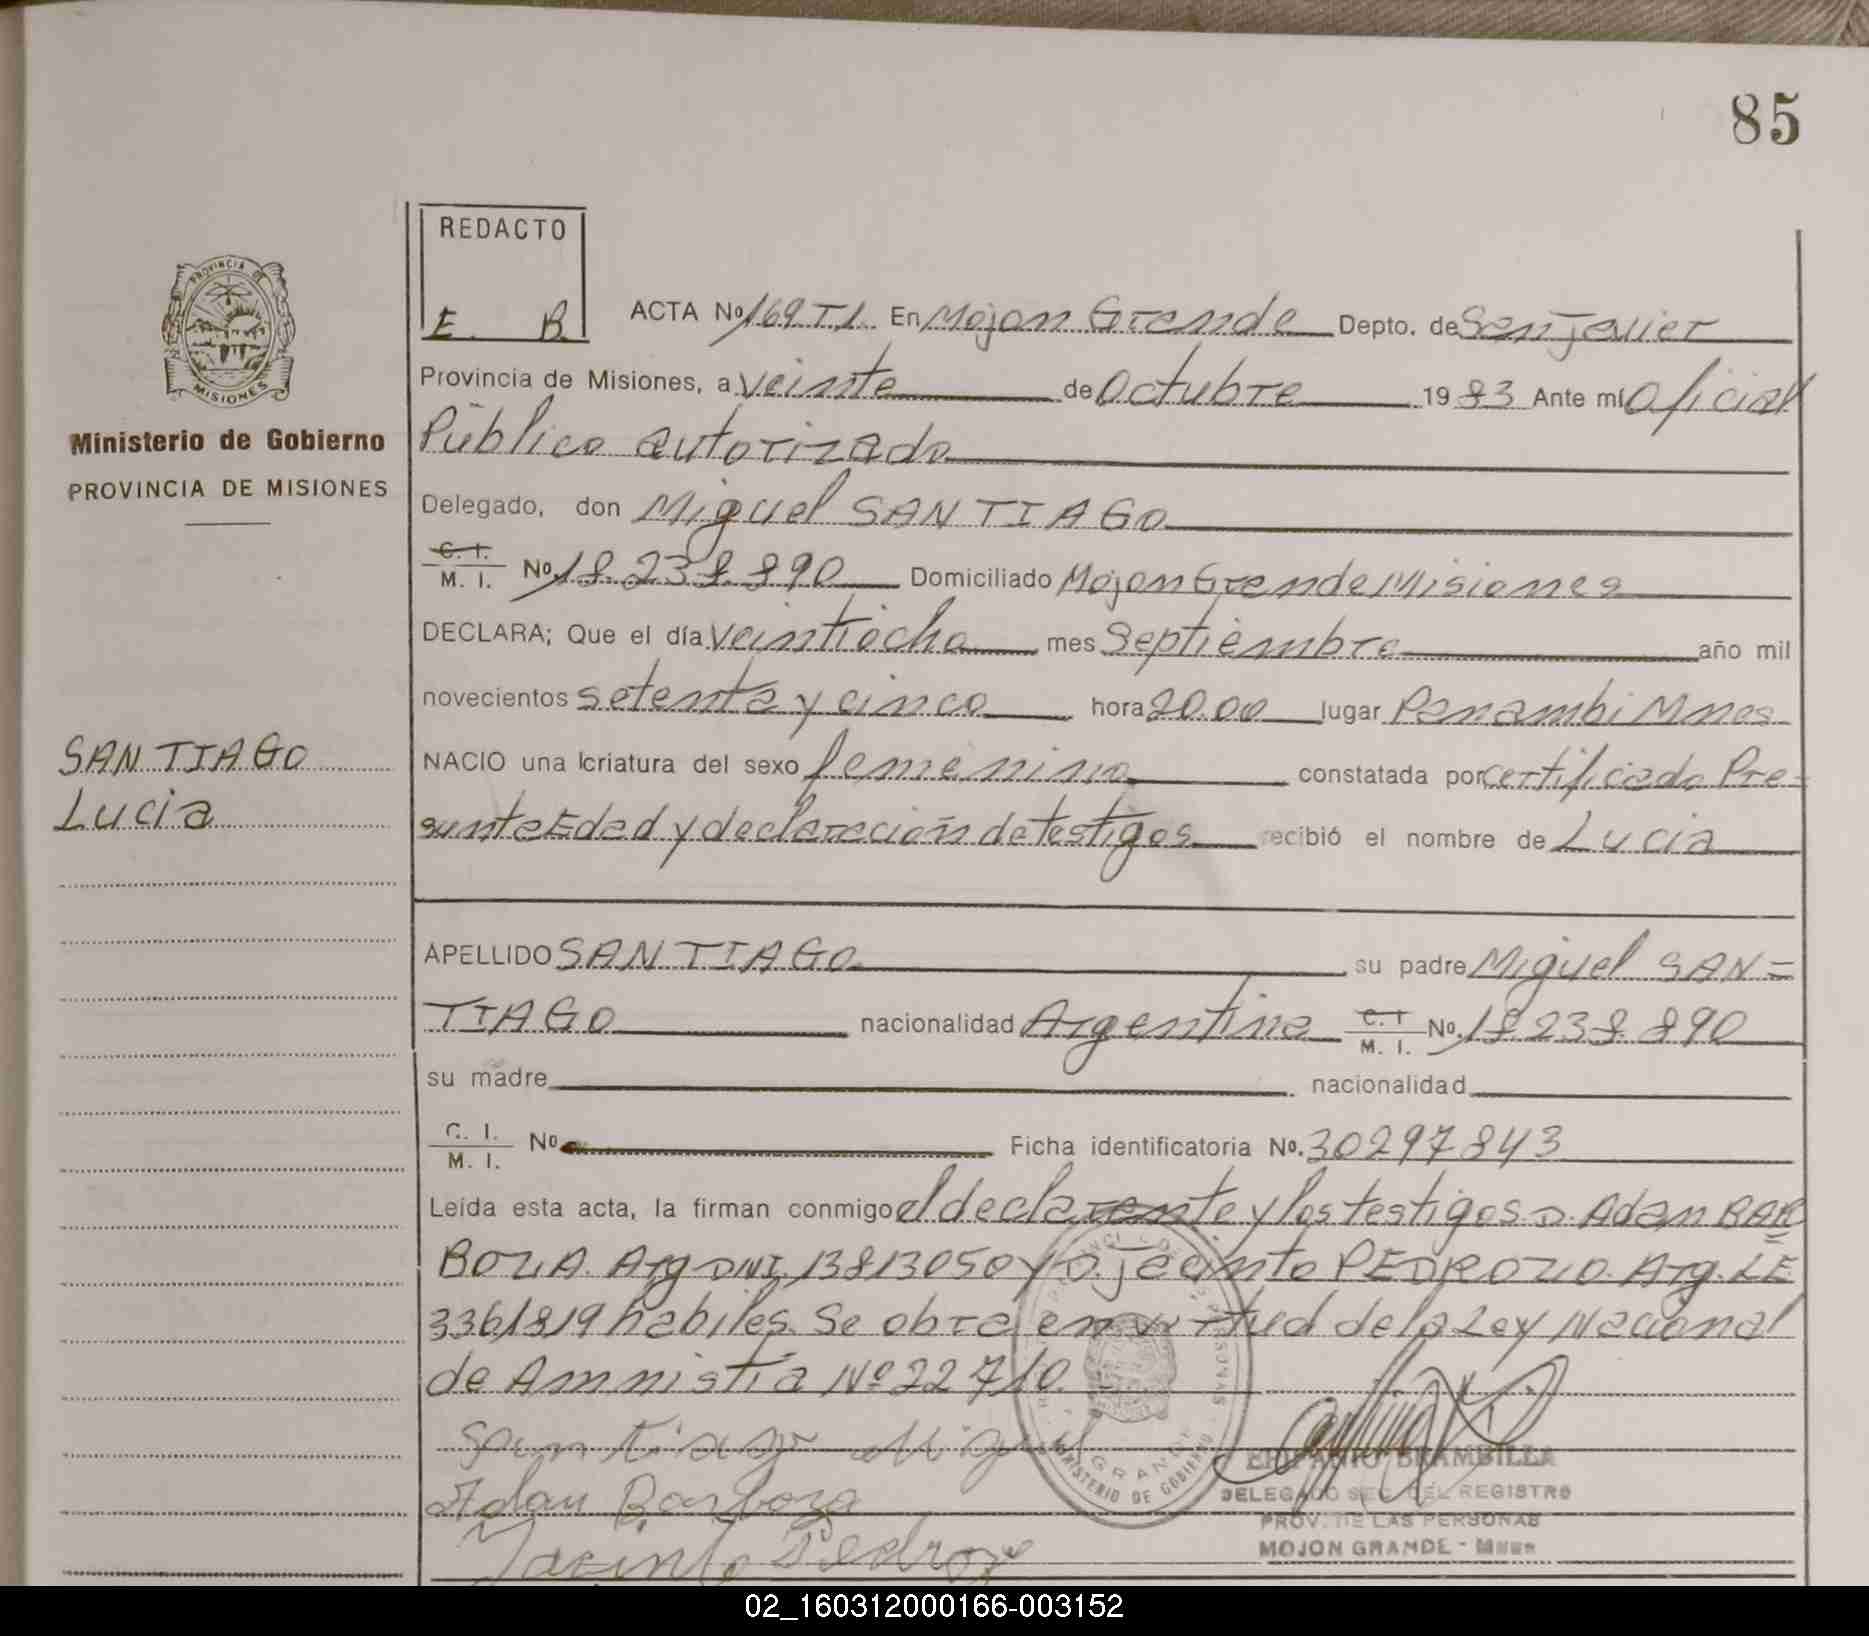 85
REDACTO
E. B.
PROVINCIA DE
MISIONES
Ministerio de Gobierno
PROVINCIA DE MISIONES
SANTIAGO
Lucia
ACTA No 169 T1. En Mojon Grande Depto. de San Javier
Provincia de Misiones, a veinte de Octubre 1983 Ante mí Oficial
Público autorizado
Delegado, don Miguel SANTIAGO
C. I. M. I. No. 18.238.890 Domiciliado Mojon Grande Misiones
DECLARA; Que el día veintiocho mes Septiembre año mil
novecientos setenta y cinco hora 20.00 lugar Panambi Mnes
NACIO una criatura del sexo femenino constatada por certificado Pre-
sunta Edad y declaración de testigos recibió el nombre de Lucia
APELLIDO SANTIAGO su padre Miguel SAN=
TIAGO nacionalidad Argentina C. I M. I. No. 18.238.890
su madre nacionalidad
C. I. M. I. No Ficha identificatoria No. 30297843
Leída esta acta, la firman conmigo el declarante y los testigos D. Adan BAR
BOZA. Arg DNI. 13813050 y D. Jacinto PEDROZO. Arg. LE
3361819 habiles. Se obra en virtud de la Ley Nacional
de Amnistia Nº 22710.
Santiago Miguel
Adan Barboza
Jacinto Pedrozo
MINISTERIO DE GOBIERNO
EPIFANIO BRAMBILLA
DELEGADO SEC. DEL REGISTRO
PROV. DE LAS PERSONAS
MOJON GRANDE - Mnes
02_160312000166-003152